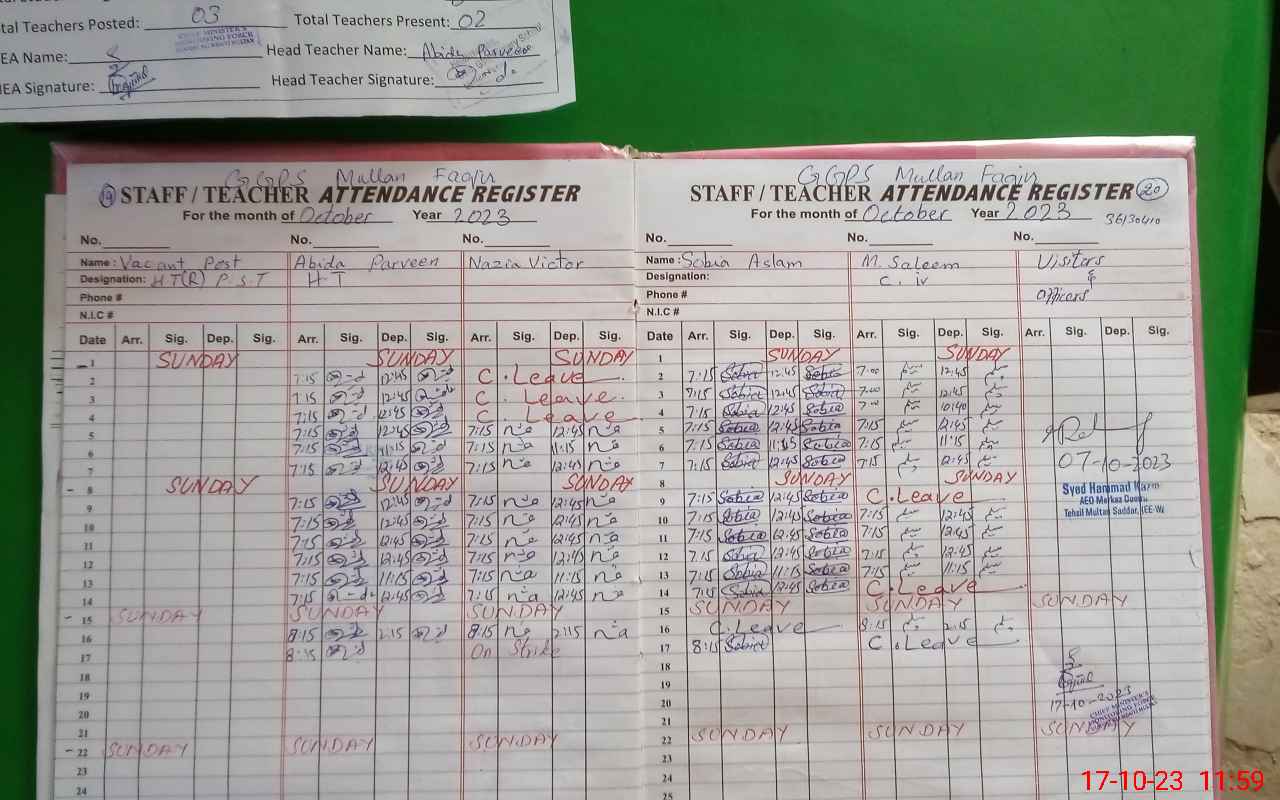 Total Teachers Posted: 03 Total Teachers Present: 02
CHIEF MINISTER'S
MONITORING FORCE
MEA Name: Head Teacher Name: Abida Parveen
MEA Signature: Head Teacher Signature:
GGPS Mullan Faqir
19 STAFF / TEACHER ATTENDANCE REGISTER
For the month of October Year 2023
No. No. No.
Name: Vacant Post Abida Parveen Nazia Victor
Designation: HT(R) P.S.T HT
Phone #
N.I.C #
Date Arr. Sig. Dep. Sig. Arr. Sig. Dep. Sig. Arr. Sig. Dep. Sig.
1 SUNDAY SUNDAY SUNDAY
2 7:15 12:45 C. Leave
3 7:15 12:45 C. Leave
4 7:15 12:45 C. Leave
5 7:15 12:45 7:15 12:45
6 7:15 11:15 7:15 11:15
7 7:15 12:45 7:15 12:45
8 SUNDAY SUNDAY SUNDAY
9 7:15 12:45 7:15 12:45
10 7:15 12:45 7:15 12:45
11 7:15 12:45 7:15 12:45
12 7:15 12:45 7:15 12:45
13 7:15 11:15 7:15 11:15
14 7:15 12:45 7:15 12:45
15 SUNDAY SUNDAY SUNDAY
16 8:15 2:15 8:15 2:15
17 8:15 On Strike
18
19
20
21
22 SUNDAY SUNDAY SUNDAY
23
24
GGPS Mullan Faqir
STAFF / TEACHER ATTENDANCE REGISTER 20
For the month of October Year 2023 36130410
No. No. No.
Name: Sobia Aslam M. Saleem Visitors
Designation: C. iv &
Phone # Officers
N.I.C #
Date Arr. Sig. Dep. Sig. Arr. Sig. Dep. Sig. Arr. Sig. Dep. Sig.
1 SUNDAY SUNDAY
2 7:15 Sobia 12:45 Sobia 7:00 12:45
3 7:15 Sobia 12:45 Sobia 7:00 12:45
4 7:15 Sobia 12:45 Sobia 7:00 10:40
5 7:15 Sobia 12:45 Sobia 7:15 12:45
6 7:15 Sobia 11:15 Sobia 7:15 11:15
7 7:15 Sobia 12:45 Sobia 7:15 12:45
07-10-2023
8 SUNDAY SUNDAY
Syed Hammad
9 7:15 Sobia 12:45 Sobia C. Leave
AEO Markaz
Tehsil Multan Saddar, (EE-W)
10 7:15 Sobia 12:45 Sobia 7:15 12:45
11 7:15 Sobia 12:45 Sobia 7:15 12:45
12 7:15 Sobia 12:45 Sobia 7:15 12:45
13 7:15 Sobia 11:15 Sobia 7:15 11:15
14 7:15 Sobia 12:45 Sobia C. Leave
15 SUNDAY SUNDAY SUNDAY
16 C. Leave 8:15 2:15
17 8:15 Sobia C. Leave
18
19
20 17-10-2023
CHIEF MINISTER'S
MONITORING FORCE
21
22 SUNDAY SUNDAY SUNDAY
23
24
25
17-10-23 11:59